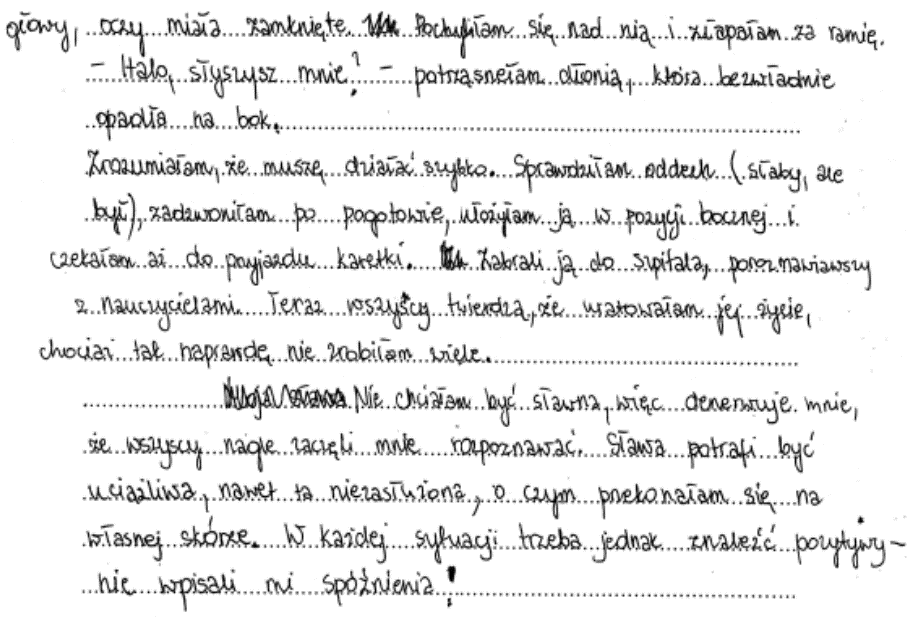 głowy, oczy miała zamknięte. Pochyliłam się nad nią i złapałam za ramię.
– Halo, słyszysz mnie? – potrząsnęłam dłonią, która bezwładnie
opadła na bok.
Zrozumiałam, że muszę działać szybko. Sprawdziłam oddech (słaby, ale
był), zadzwoniłam po pogotowie, ułożyłam ją w pozycji bocznej i
czekałam aż do przyjazdu karetki. Zabrali ją do szpitala, porozmawiawszy
z nauczycielami. Teraz wszyscy twierdzą, że uratowałam jej życie,
chociaż tak naprawdę nie zrobiłam wiele.
Nie chciałam być sławna, więc denerwuje mnie,
że wszyscy nagle zaczęli mnie rozpoznawać. Sława potrafi być
uciążliwa, nawet ta niezasłużona, o czym przekonałam się na
własnej skórze. W każdej sytuacji trzeba jednak znaleźć pozytywy –
nie wpisali mi spóźnienia!